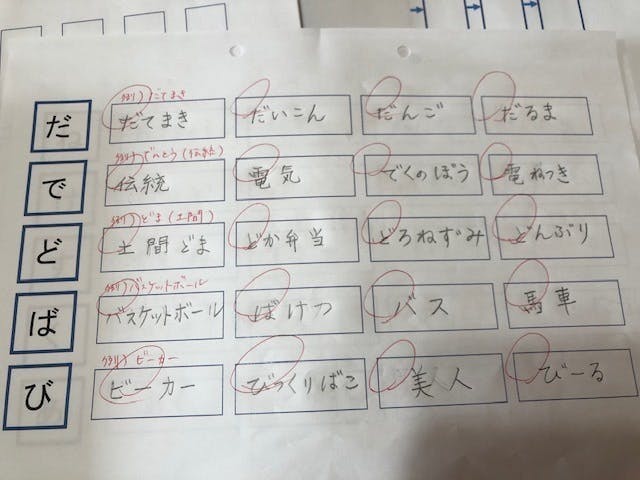 例)だてまき
だ だてまき だいこん だんご だるま
例)でんとう(伝統)
で 伝統 電気 でくのぼう 電ねつき
例)どま(土間)
ど 土間どま どか弁当 どろねずみ どんぶり
例)バスケットボール
ば バスケットボール ばけつ バス 馬車
例)ビーカー
び ビーカー びっくりばこ 美人 びーる